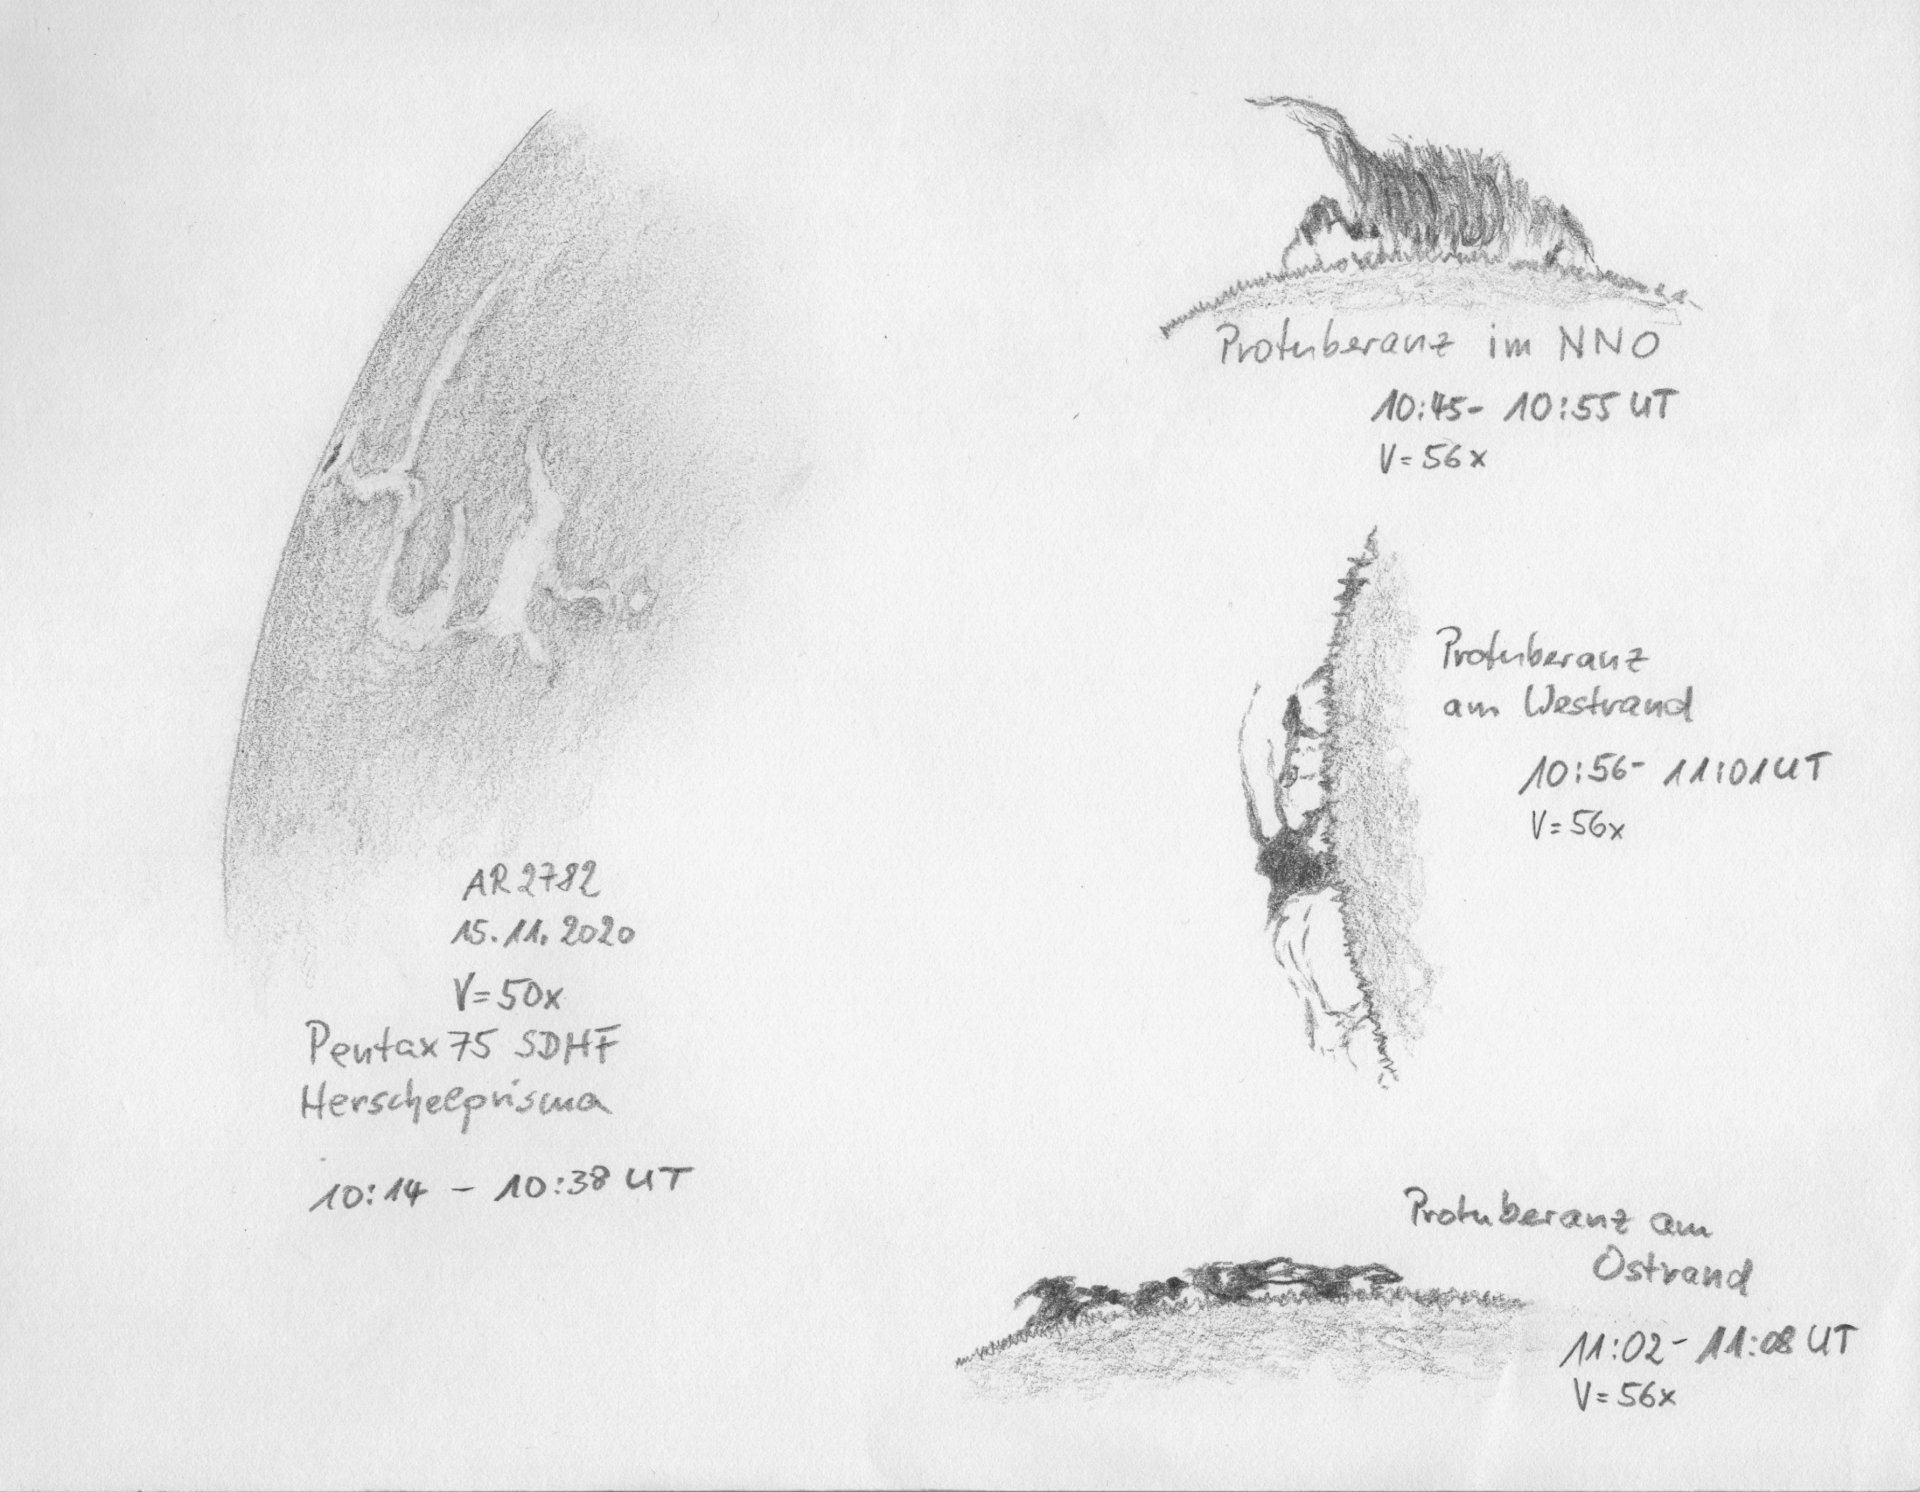 AR 2782
15.11.2020
V=50x
Pentax 75 SDHF
Herschelprisma
10:14 - 10:38 UT
Protuberanz im NNO
10:45- 10:55 UT
V=56x
Protuberanz
am Westrand
10:56- 11:01 UT
V=56x
Protuberanz am
Ostrand
11:02-11:08 UT
V=56x